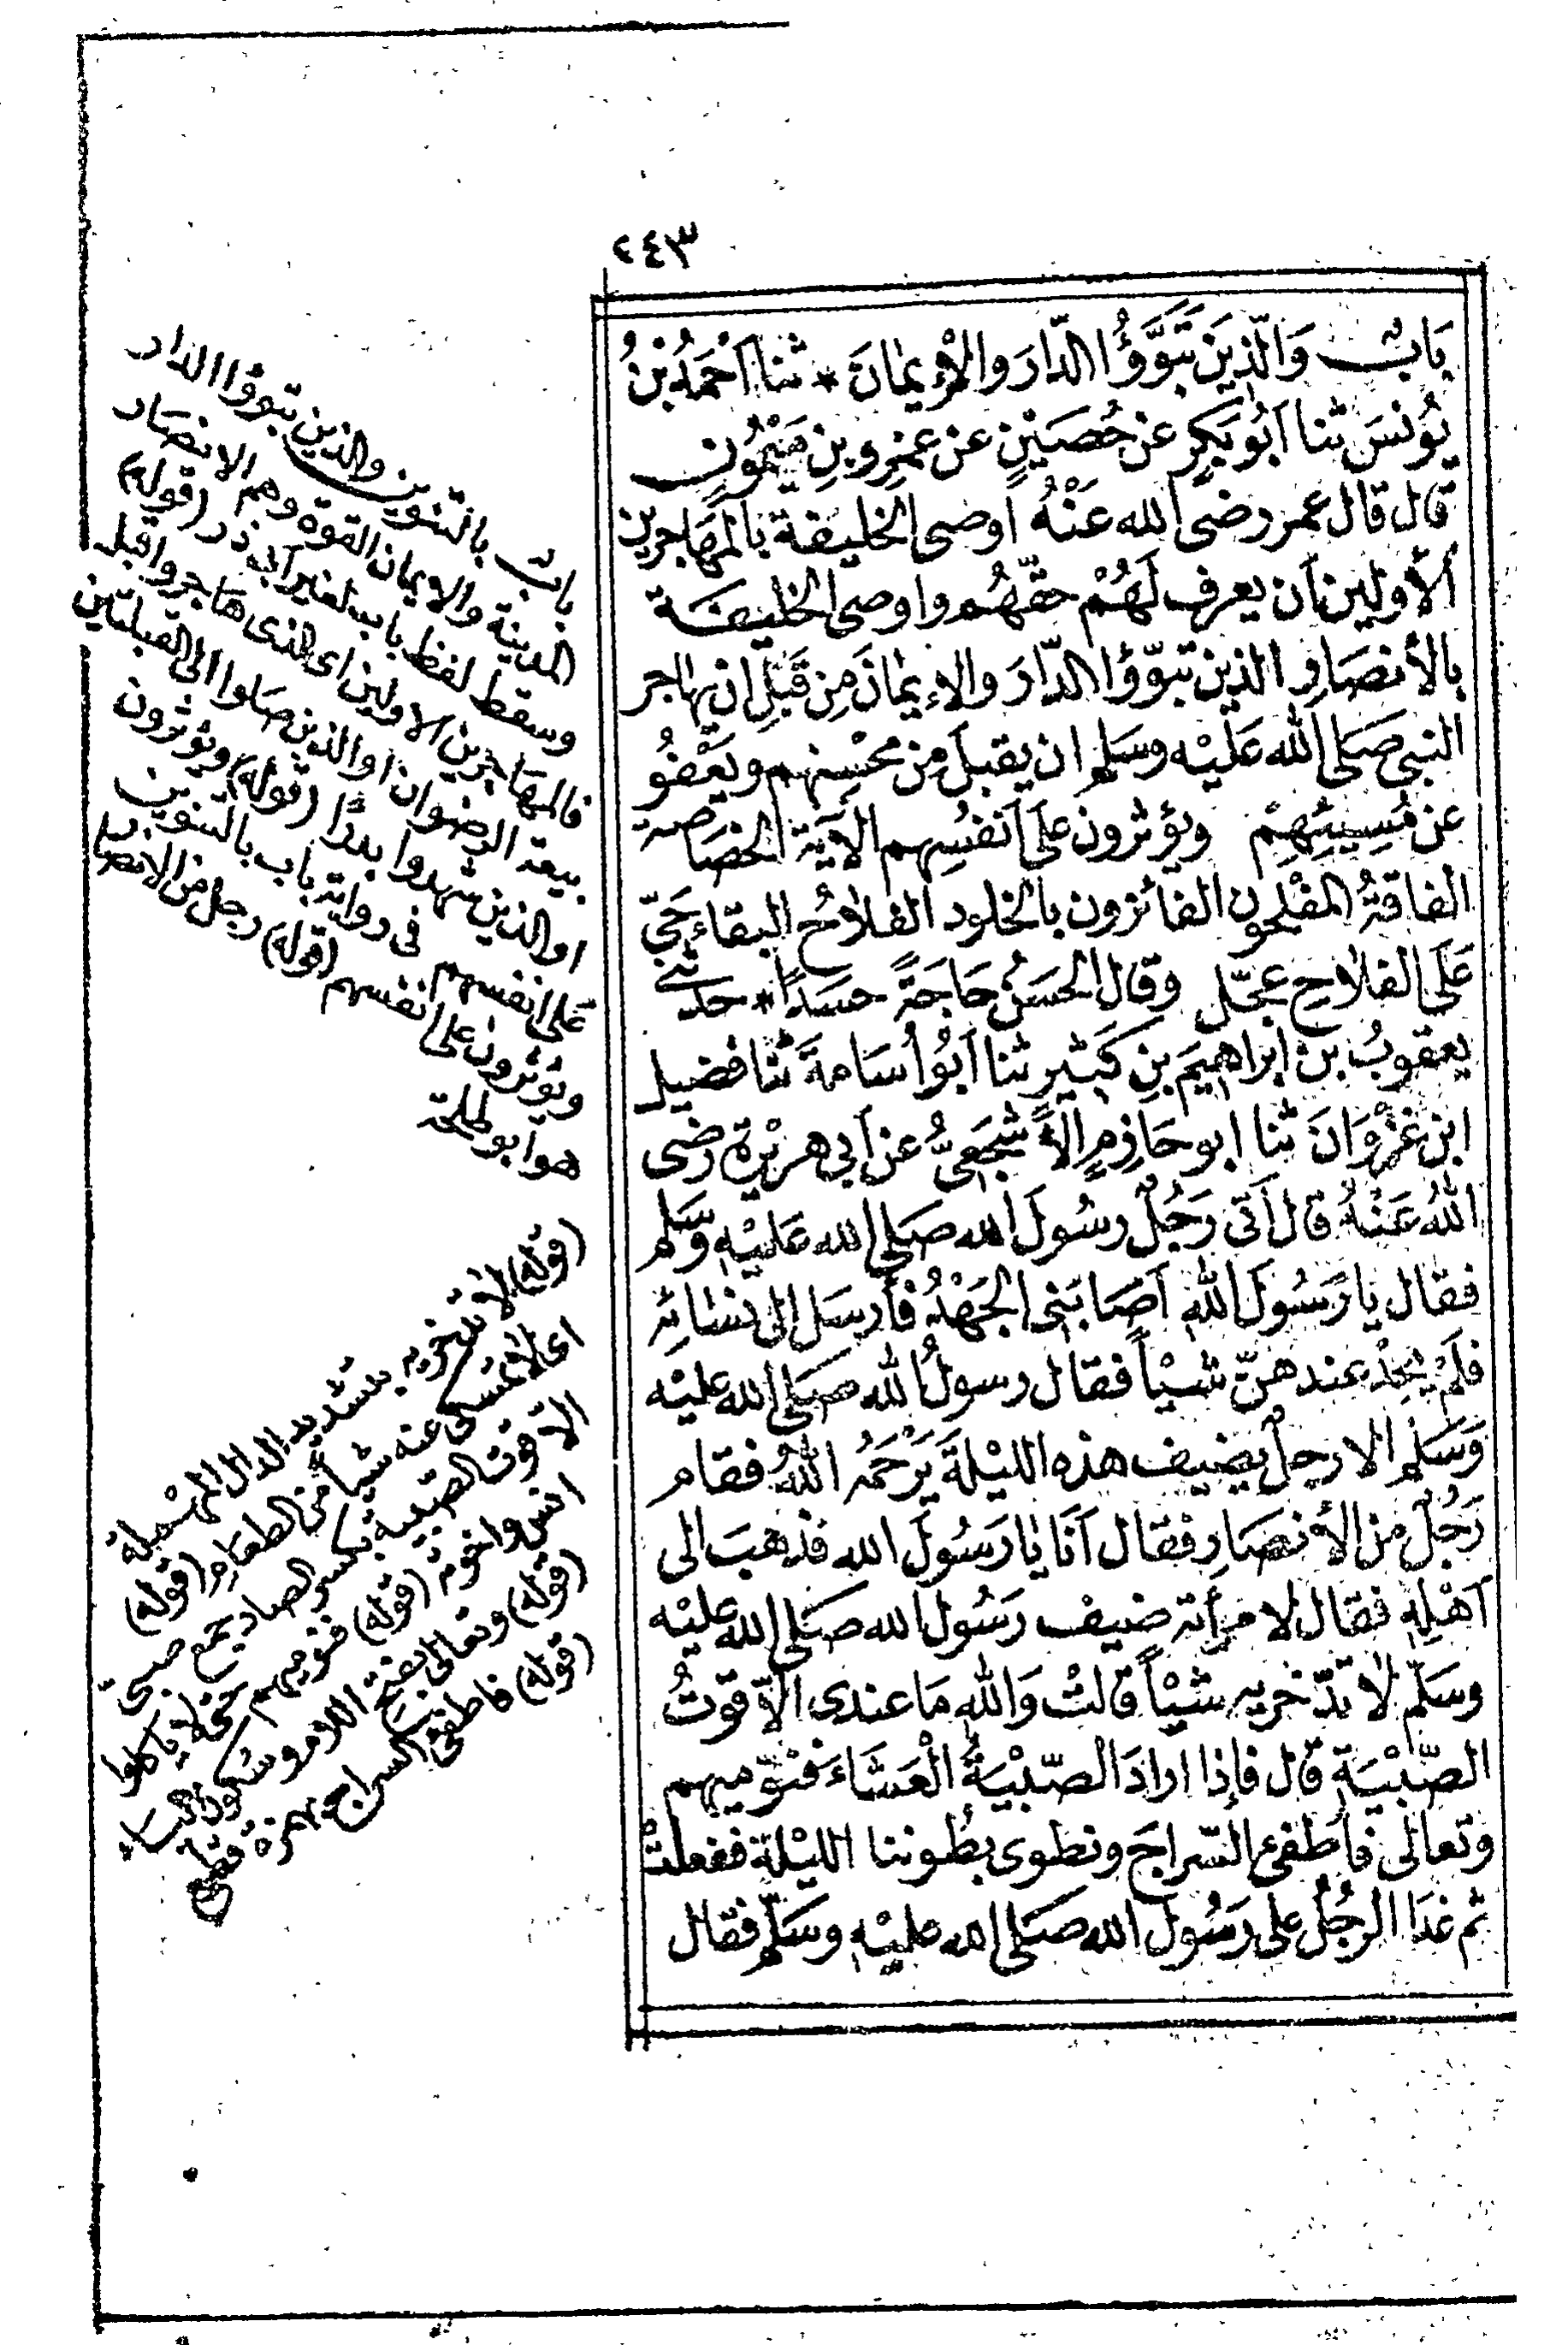 ٢٤٣
بَابٌ وَالَّذِينَ تَبَوَّؤُا الدَّارَ وَالْاِيمَانَ * ثنا اَحْمَدُ بْنُ
يُونُسَ ثنا اَبُو بَكرٍ عَن حُصَيْنٍ عن عَمْرِو بنِ مَيْمُونٍ
قال قال عمر رضى الله عَنْهُ اوصى الخليفة بالمهَاجرين
الأولين اَن يعرف لَهُمْ حقَّهُم واوصى الخليفَة
بالأنصَارِ الذين تبوّؤُا الدّارَ والإيمَانَ مِن قَبْلِ ان يهاجر
النبى صَلى الله عَليْه وسَلم ان يقبلَ مِن محْسِنهم ويَعْفوُ
عن مُسِيئِهِمْ ويؤثرون عَلَى اَنفسُِهم الآيَة الخصَاصَة
الفاقَةُ المفْلحون الفائزون بالخلود الفلاحُ البقاء حَىَّ
عَلَى الفلاحِ عجّل وقال الحسَنُ حَاجَةً حسَدًا * حدثنى
يعقوبُ بن ابراهيمَ بنِ كَثيرٍ ثنا اَبُو اُسَامةَ ثنا فضيل
ابن غَزْوَانَ ثنا ابو حَازمٍ الأشجَعىُّ عن اَبى هريْرة رضى
اللهُ عَنْهُ قال اَتى رَجُلٌ رسُولَ الله صَلى الله عَليْه وَسَلم
فقال يا رَسُولَ اللهِ اَصَابَنِى الجَهْدُ فأرسَل الى نسائه
فلَمْ يَجِدْ عند هنَّ شيْأً فقال رسولُ الله صَلى الله عليْه
وَسَلم الا رجلٌ يضيف هذه الليْلَةَ يَرْحَمُه اللهُ فقام
رَجُلٌ من الأنصَارِ فقال اَنَا يا رَسُولَ الله فذهبَ الى
اَهْلِهِ فقال لامرأته ضيف رَسُول الله صَلى الله عليْه
وسَلّم لا تدّخريه شيْأً قالتْ وَاللهِ مَا عندى الاّ قوتُ
الصّبْيَةِ قال فإذا ارادَ الصّبْيَةُ الْعَشَاءَ فنوّميهم
وتعالى فأطفئى السّراجَ ونطوى بطُوننا الليْلة ففعلتْ
ثم غدَا الرجُلُ على رَسُولِ الله صَلى الله عليْه وسَلّم فقال
باب بالتنوين والذين تبوؤا الدار
المدينة والايمان القوة وهم الانصار
وسقط لفظ باب لغير اَبى ذر (قوله)
فالمهاجرين الاولين اى الذى هاجروا قبل
بيعة الرضوان او الذين صَلوا الى القبلتين
او الذين شهدوا بدرًا (قوله) ويؤثرون
على انفسهم فى رواية باب بالتنوين
ويؤثرون على انفسهم (قوله) رجل من الانصار
هو ابو طلحة
(قوله) لا تدخريه بتشديد الدال المهْملة
اى لا تمسكى عنه شيأ من الطعَام (قوله)
الا قوت الصّبية بكسر الصاد جمع صبىّ
انس واخوته (قوله) فنوميهم حتى لا ياكلوا
(قوله) وتعالى بفتح اللام وسكون اليَاء
(قوله) فاطفئى السراج بهمزة قطع